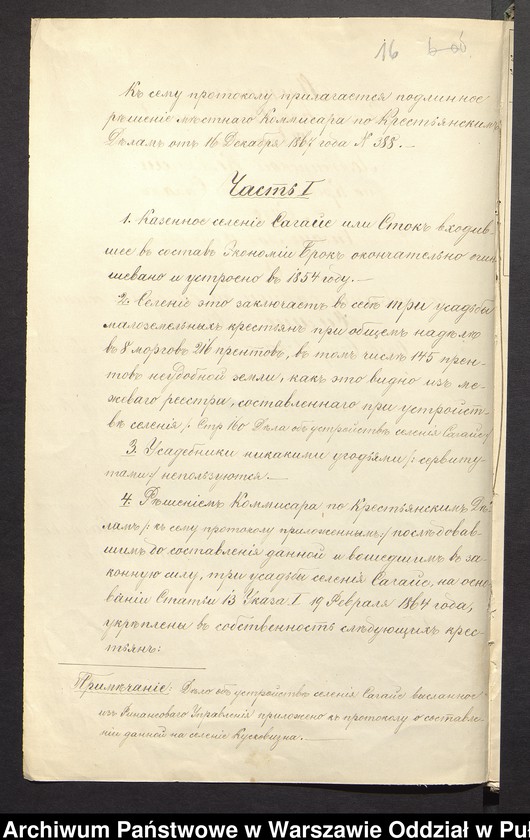 16
Къ сему протоколу прилагается подлинное
рѣшеніе мѣстнаго Коммисара по Крестьянскимъ
Дѣламъ отъ 16 Декабря 1867 года N 388. —
Часть I
1. Казенное селеніе Сагайе или Стокъ входив-
шее въ составъ Экономіи Брокъ окончательно очин-
шевано и устроено въ 1854 году. —
2. Селеніе это заключаетъ въ себѣ три усадьбы
малоземельныхъ крестьянъ при общемъ надѣлѣ
въ 8 моргов 216 прентовъ, въ томъ числѣ 145 прен-
товъ неудобной земли, какъ это видно изъ ме-
жеваго реестри, составленнаго при устройст-
вѣ селенія /: Стр 160 Дѣла объ устройствѣ селенія Сагайе :/
3. Усадебники никакими угодьями /: сервиту-
тами :/ непользуются. —
4. Рѣшеніемъ Коммисара по Крестьянскимъ Дѣ-
ламъ /: къ сему протоколу приложеннымъ :/ послѣдовав-
шимъ до составленія данной и вошедшимъ въ за-
конную силу, три усадьбы селенія Сагайе, на осно-
ваніи Статьи 13 Указа I 19 Февраля 1864 года,
укрѣплены въ собственность слѣдующихъ крес-
тьянъ:
Примѣчаніе: Дѣло объ устройствѣ селенія Сагайе высланное
изъ Финансоваго Управленія приложено къ протоколу о составле-
ніи данной на селеніе
Archiwum Państwowe w Warszawie Oddział w Pu